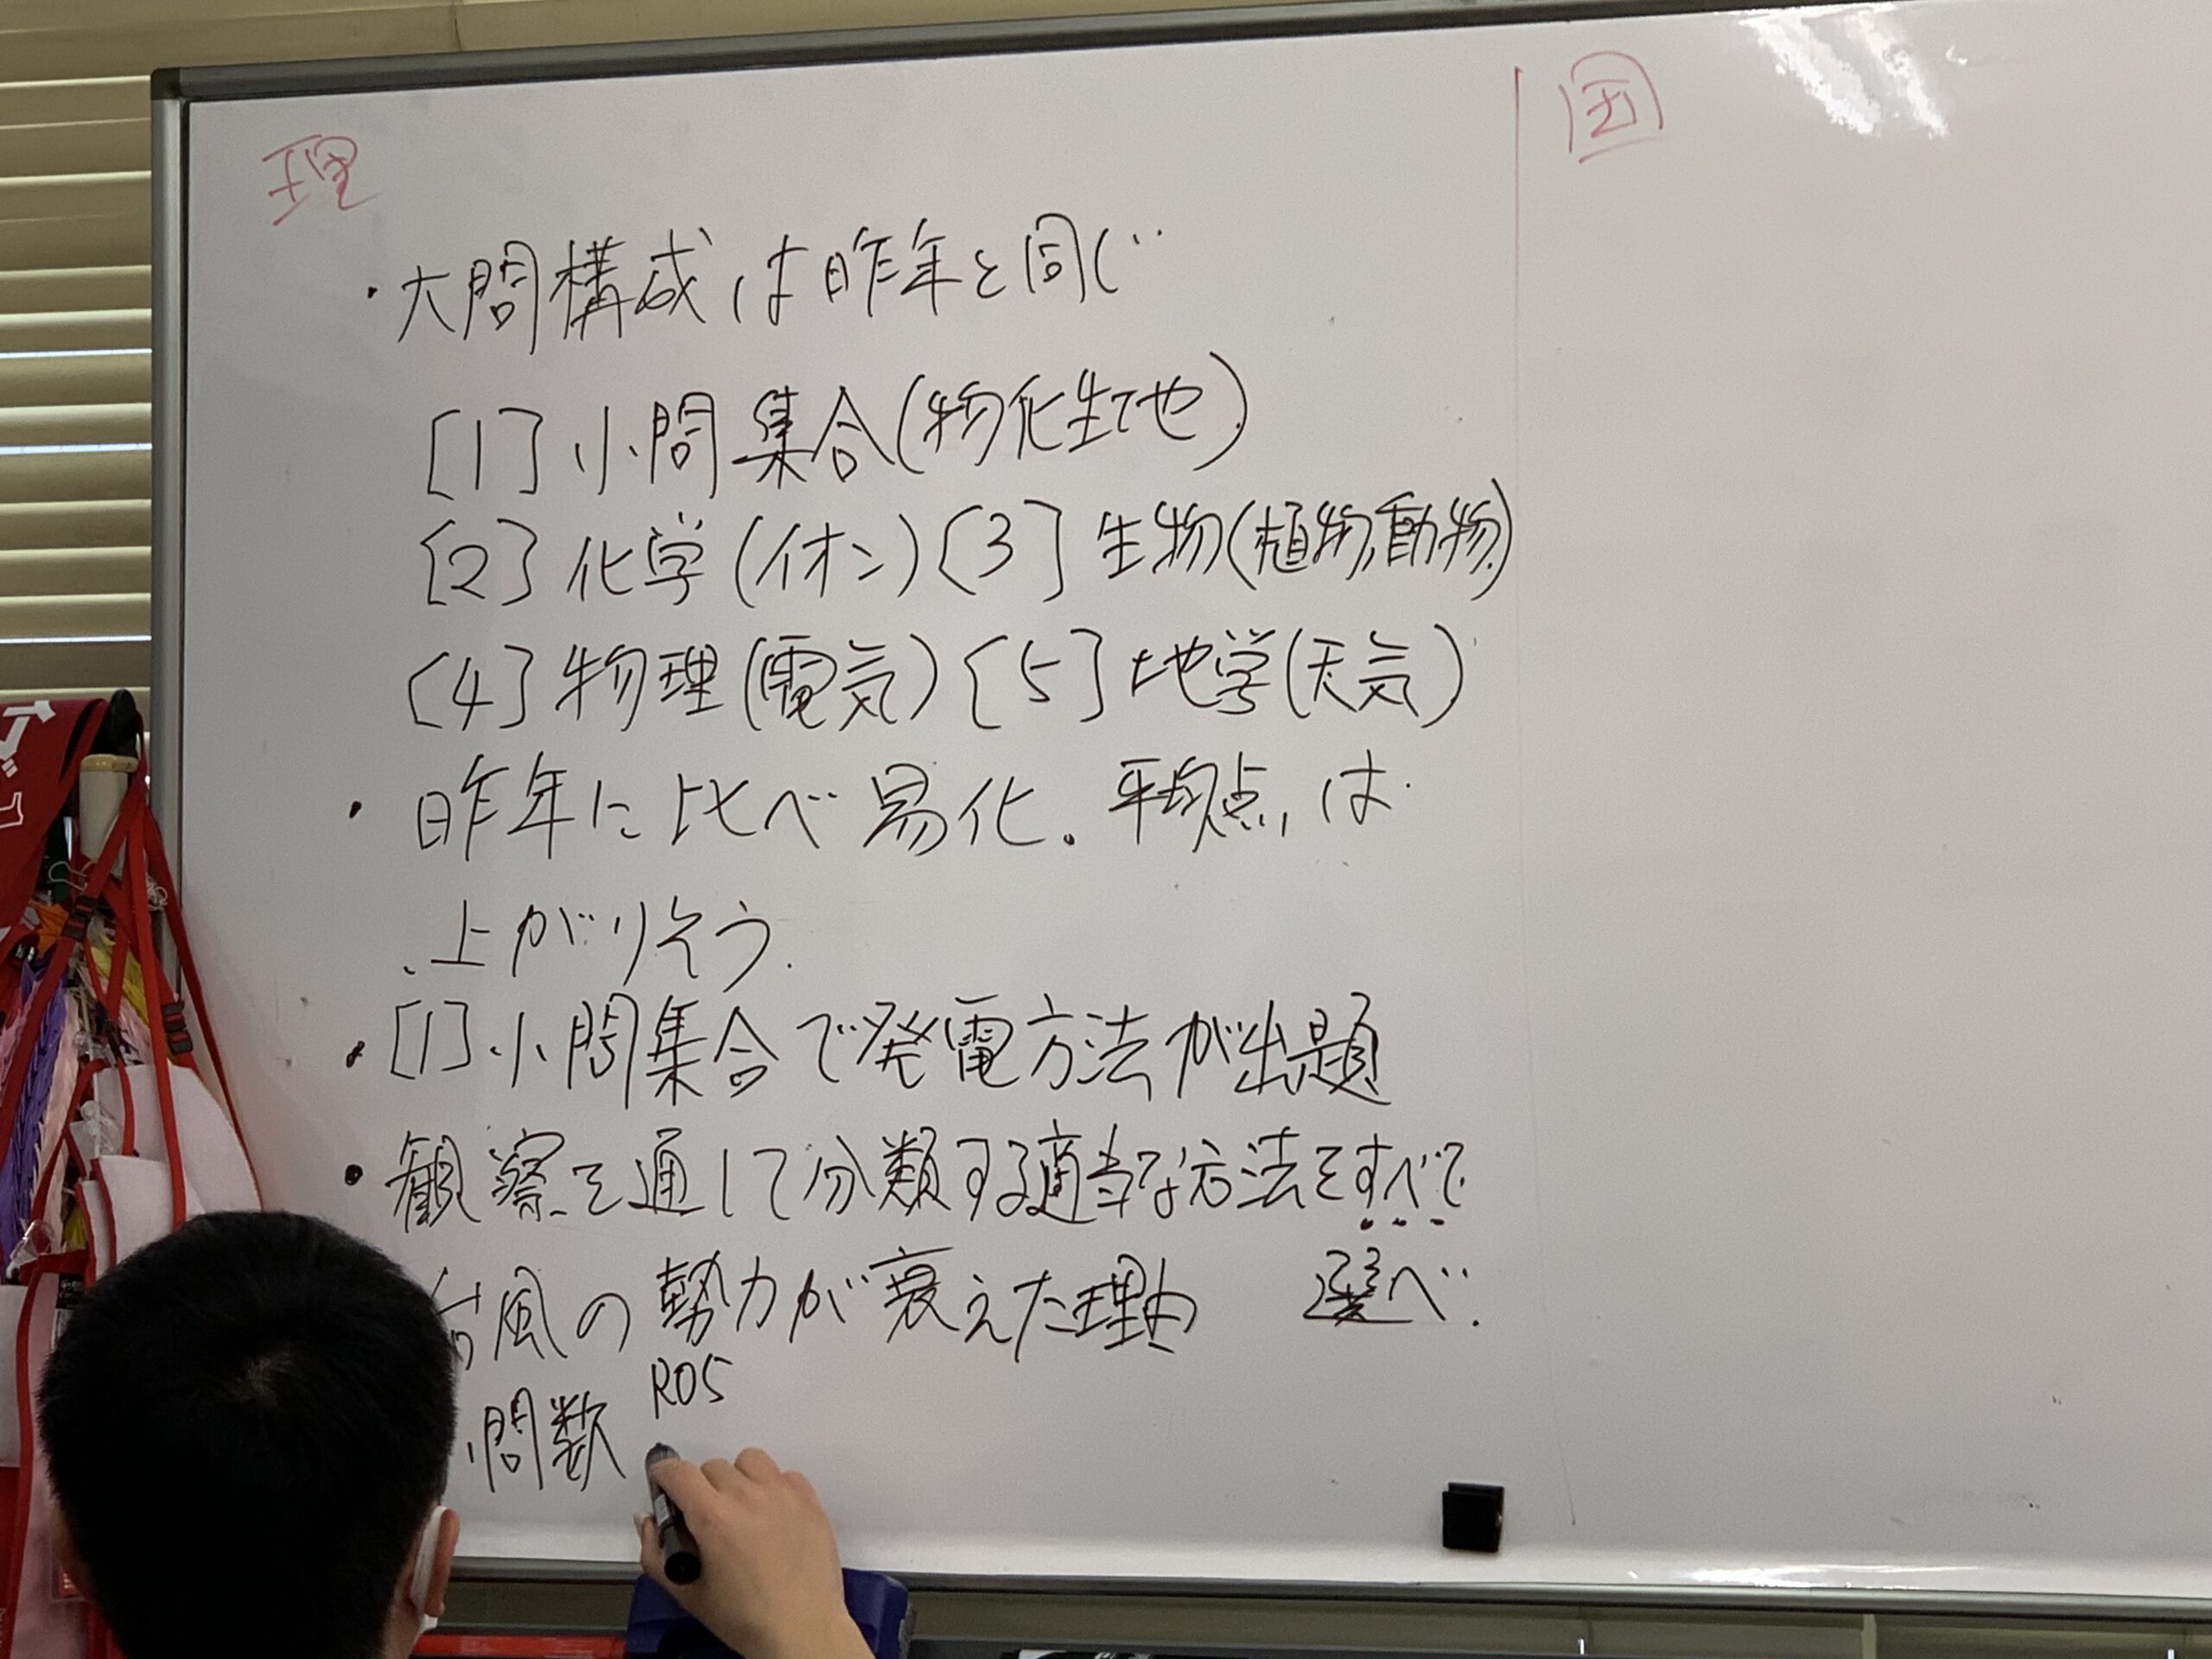 理
・大問構成は昨年と同じ
[1] 小問集合(物化生地)
[2] 化学(イオン) [3] 生物(植物,動物)
[4] 物理(電気) [5] 地学(天気)
・昨年に比べ易化。平均点は
上がりそう.
・[1] 小問集合で発電方法が出題
・観察を通して分類する適当な方法をすべて
選べ.
台風の勢力が衰えた理由
問数 R05
国